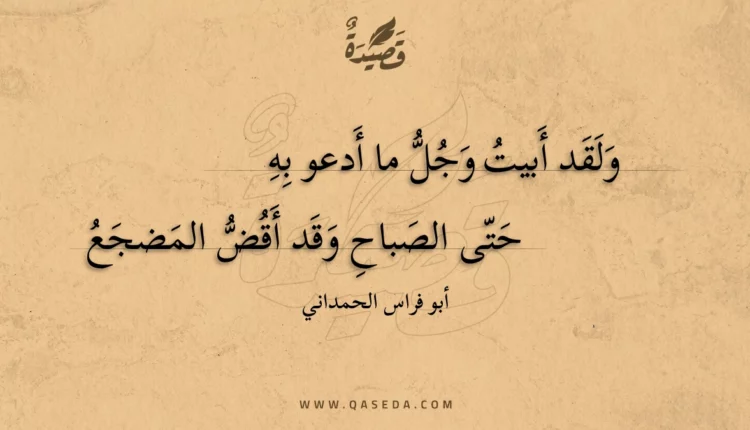 قَصِيْدَةٌ
وَلَقَد أَبيتُ وَجُلُّ ما أَدعو بِهِ
حَتّى الصَباحِ وَقَد أَقُضُّ المَضجَعُ
أبو فراس الحمداني
WWW.QASEDA.COM